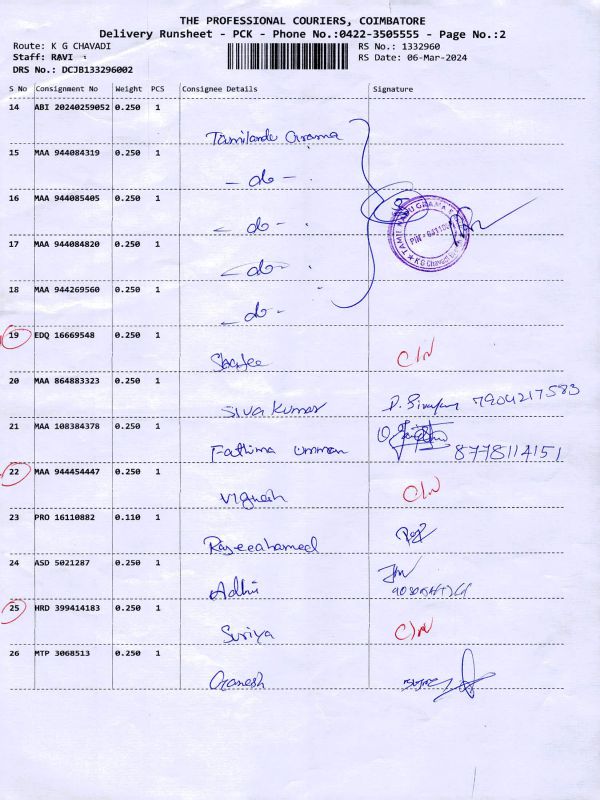 THE PROFESSIONAL COURIERS, COIMBATORE
Delivery Runsheet - PCK - Phone No.:0422-3505555 - Page No.:2
Route: K G CHAVADI
RS No.: 1332960
Staff: RAVI
RS Date: 06-Mar-2024
DRS No.: DCJB133296002
S No Consignment No Weight PCS Consignee Details Signature
14 ABI 20240259052 0.250 1
Tamilandu Grama
15 MAA 944084319 0.250 1
- do -
16 MAA 944085405 0.250 1
do -
TAMIL NADU GRAMA
PIN -
KG Chavadi
17 MAA 944084820 0.250 1
do
18 MAA 944269560 0.250 1
do
19 EDQ 16669548 0.250 1
C/N
20 MAA 864883323 0.250 1
Siva Kumar 7904217583
21 MAA 108384378 0.250 1
Fathima umman 8778114151
22 MAA 944454447 0.250 1
Vignesh C/N
23 PRO 16110882 0.110 1
Raseeahamed
24 ASD 5021287 0.250 1
Adhi
25 HRD 399414183 0.250 1
Suriya C/N
26 MTP 3068513 0.250 1
Ganesh